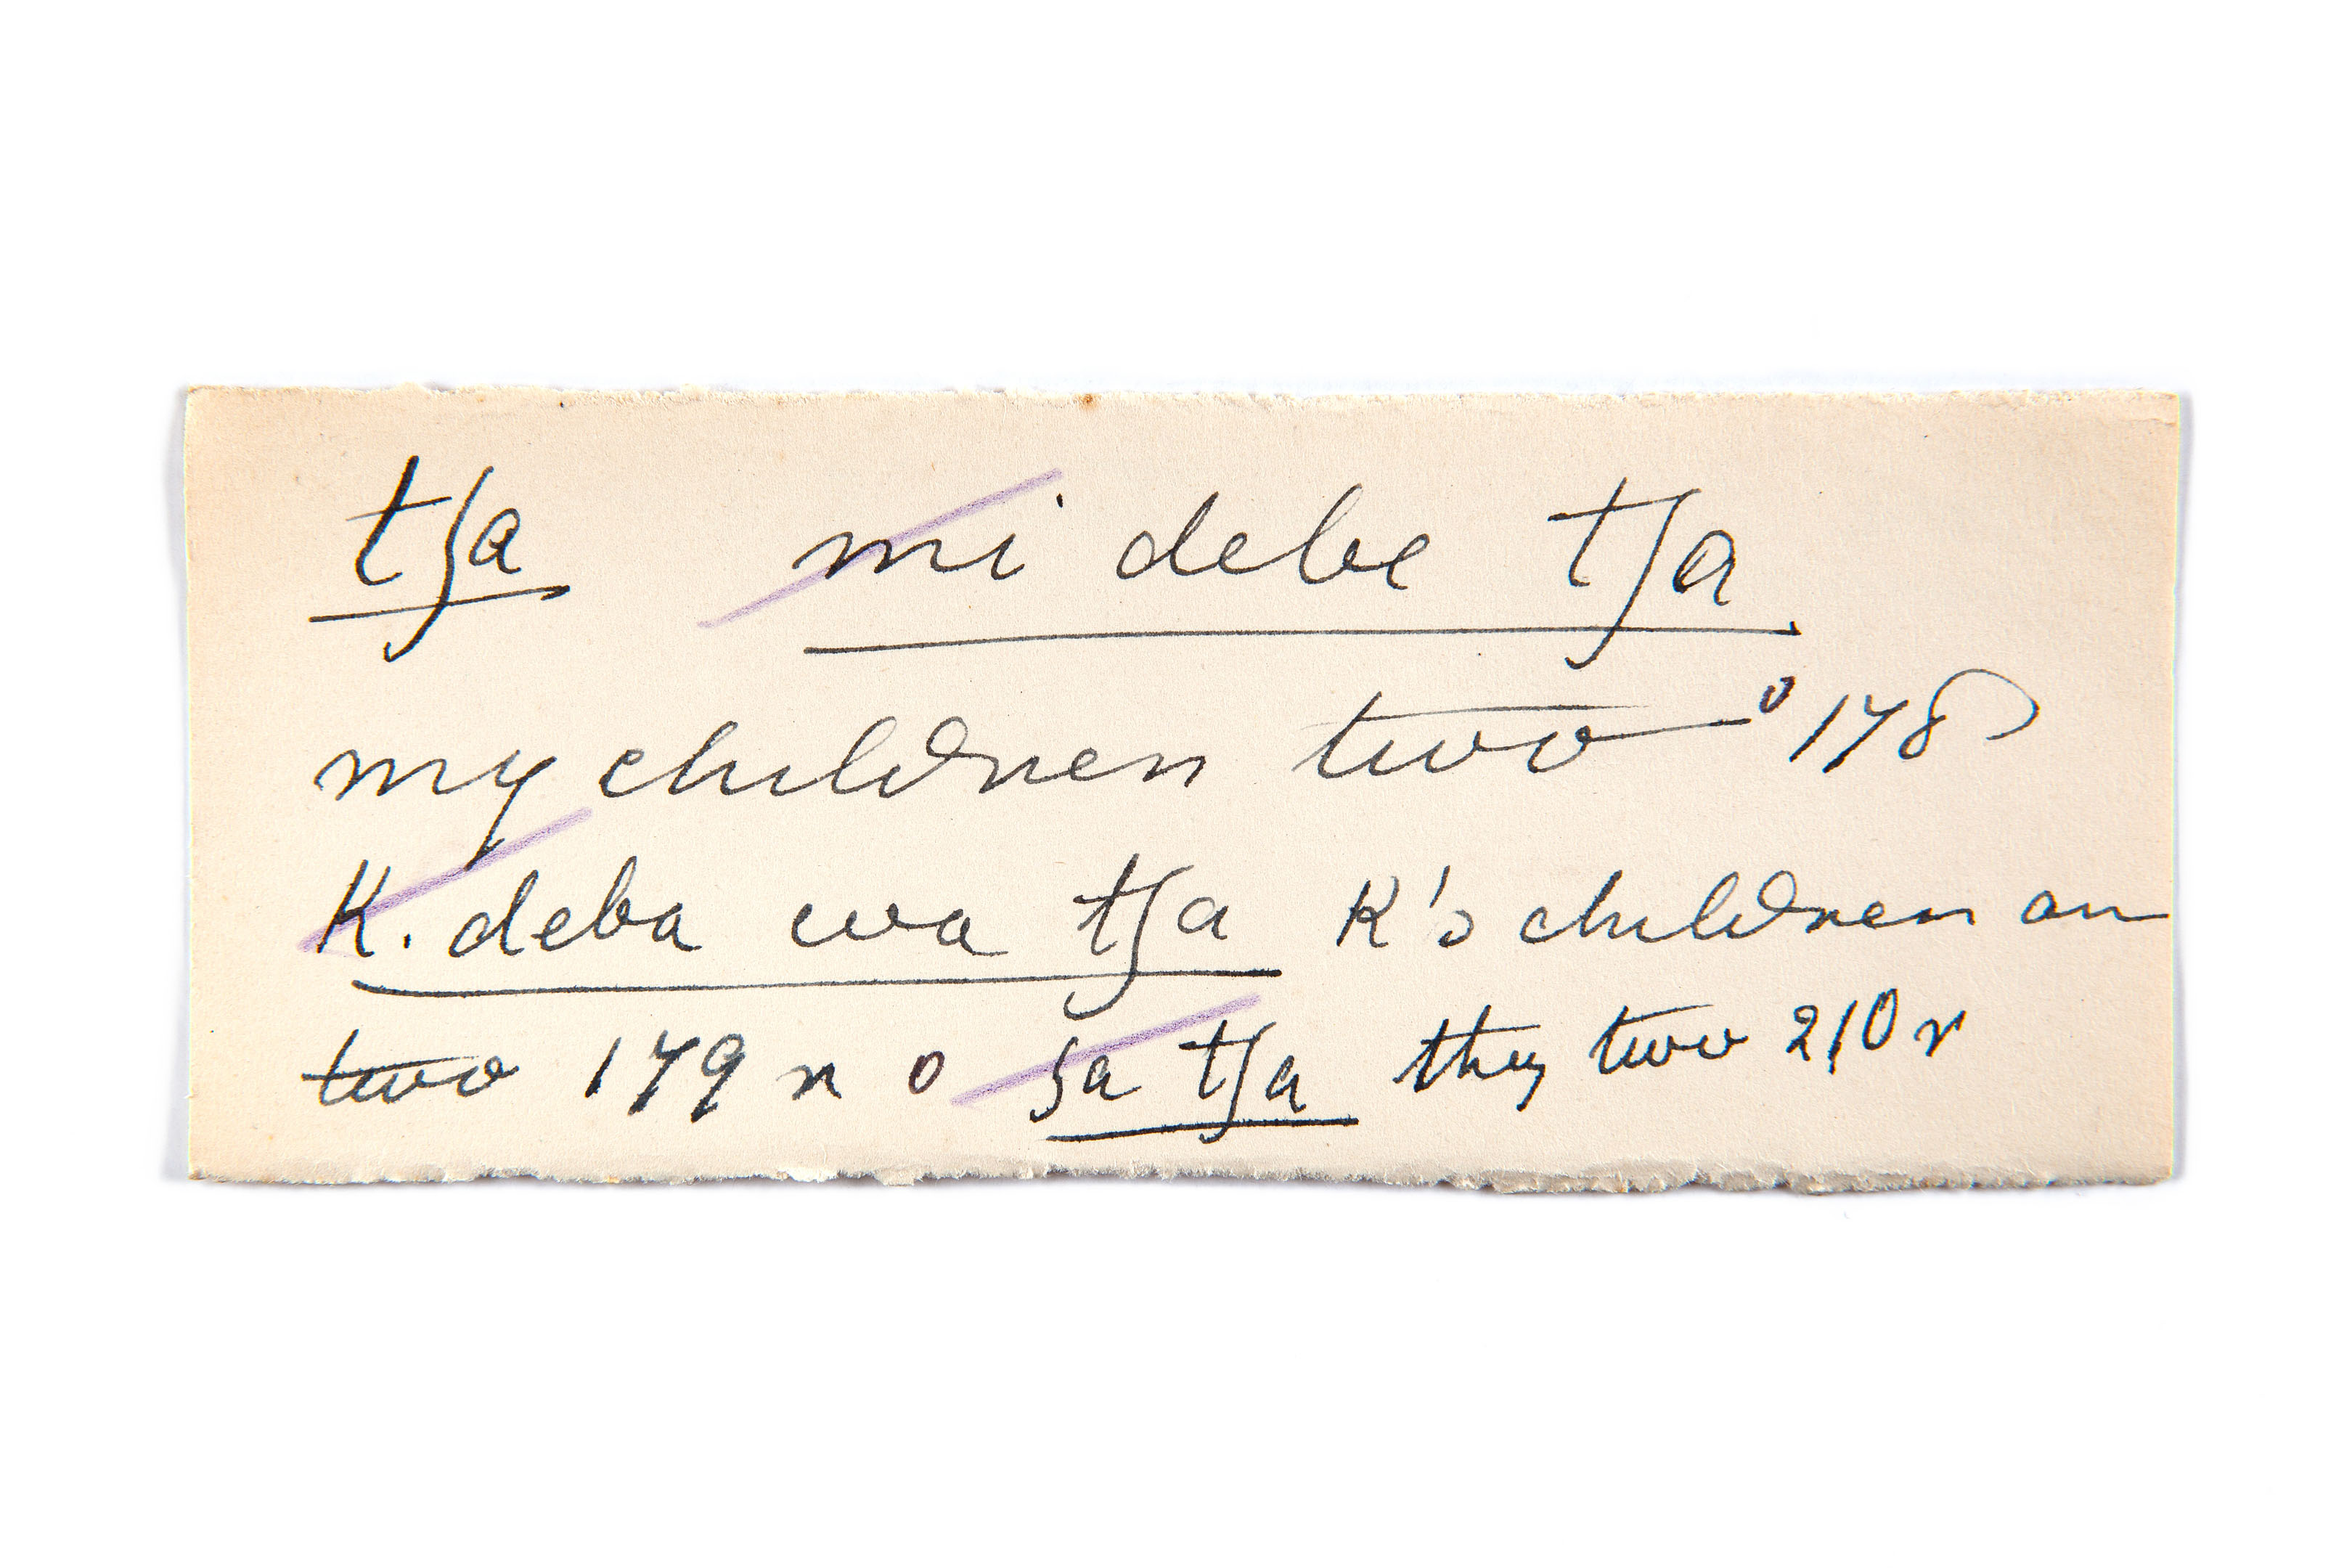 tſa mi debe tſa
my children two ⁰ 178
K. deba wa tſa K's children an
two 179 n 0 ʒa tſa they two 210 r